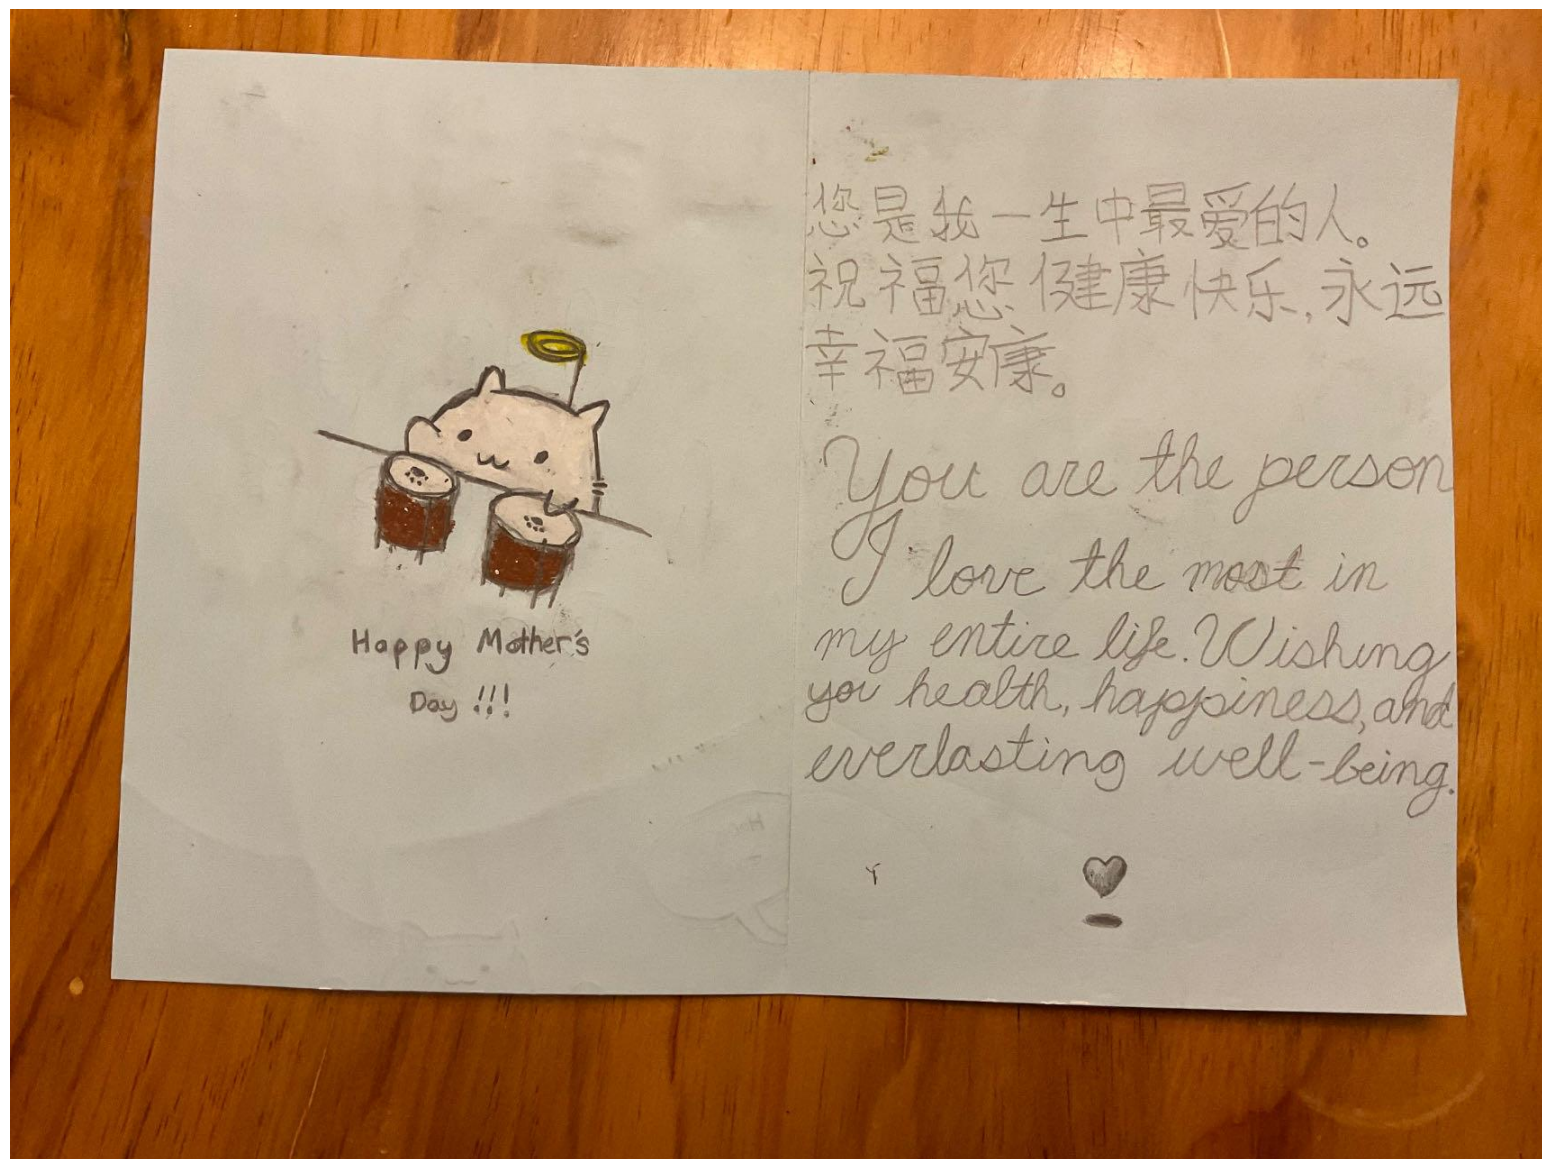 Happy Mother's
Day !!!
您是我一生中最爱的人。
祝福您健康快乐,永远
幸福安康。
You are the person
I love the most in
my entire life. Wishing
you health, happiness, and
everlasting well-being.